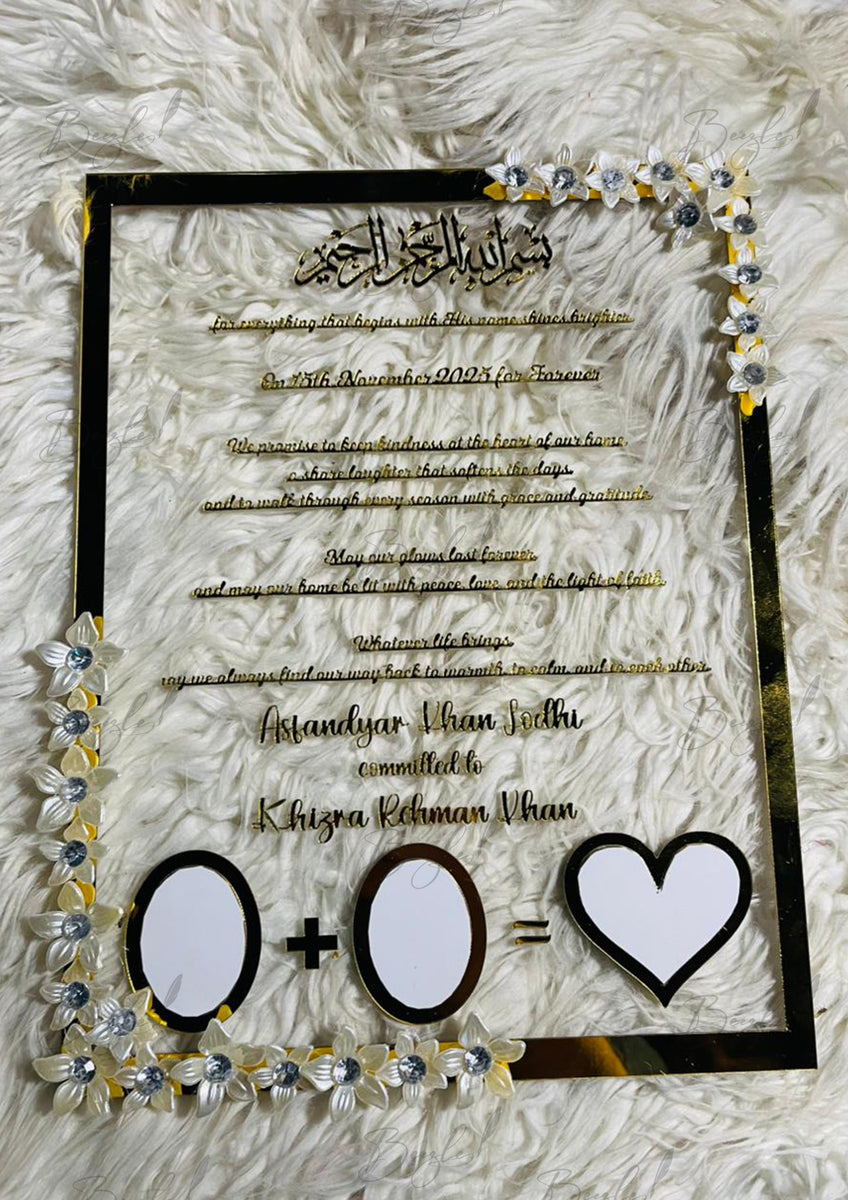 بسم الله الرحمن الرحيم
for everything that begins with His name shines brighter
On 15th November 2025 for Forever
We promise to keep kindness at the heart of our home,
o share laughter that softens the days,
and to walk through every season with grace and gratitude
May our glows last forever
and may our home be lit with peace, love, and the light of faith.
Whatever life brings,
ay we always find our way back to warmth, to calm, and to each other.
Asfandyar Khan Lodhi
committed to
Khizra Rehman Khan
+ =
Beezles!